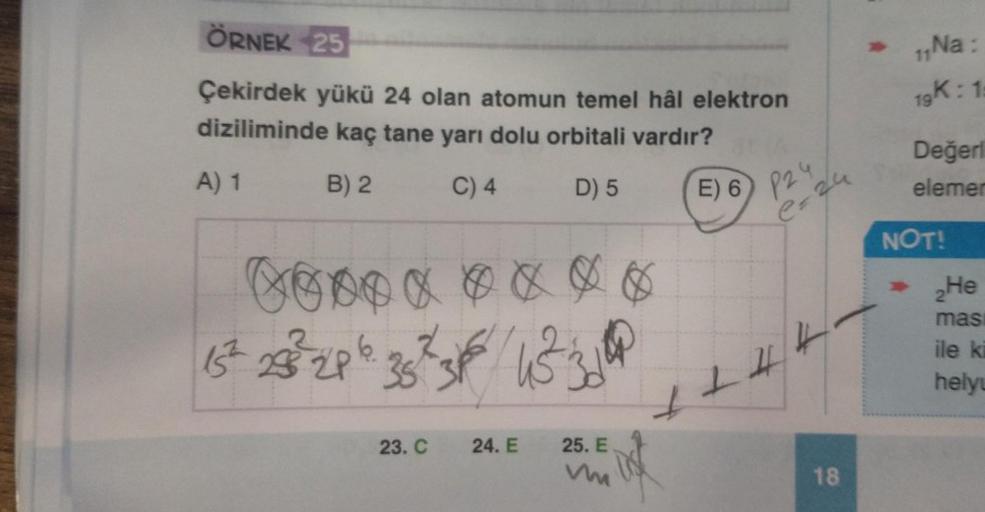 ÖRNEK 25
Çekirdek yükü 24 olan atomun temel hâl elektron
diziliminde kaç tane yarı dolu orbitali vardır?
A) 1 B) 2 C) 4 D) 5 E) 6
1s² 2s² 2p⁶ 3s² 3p⁶ 4s² 3d
23. C 24. E 25. E
18
₁₁Na :
₁₉K : 1
Değerl
elemen
NOT!
₂He
ması
ile ki
helyu